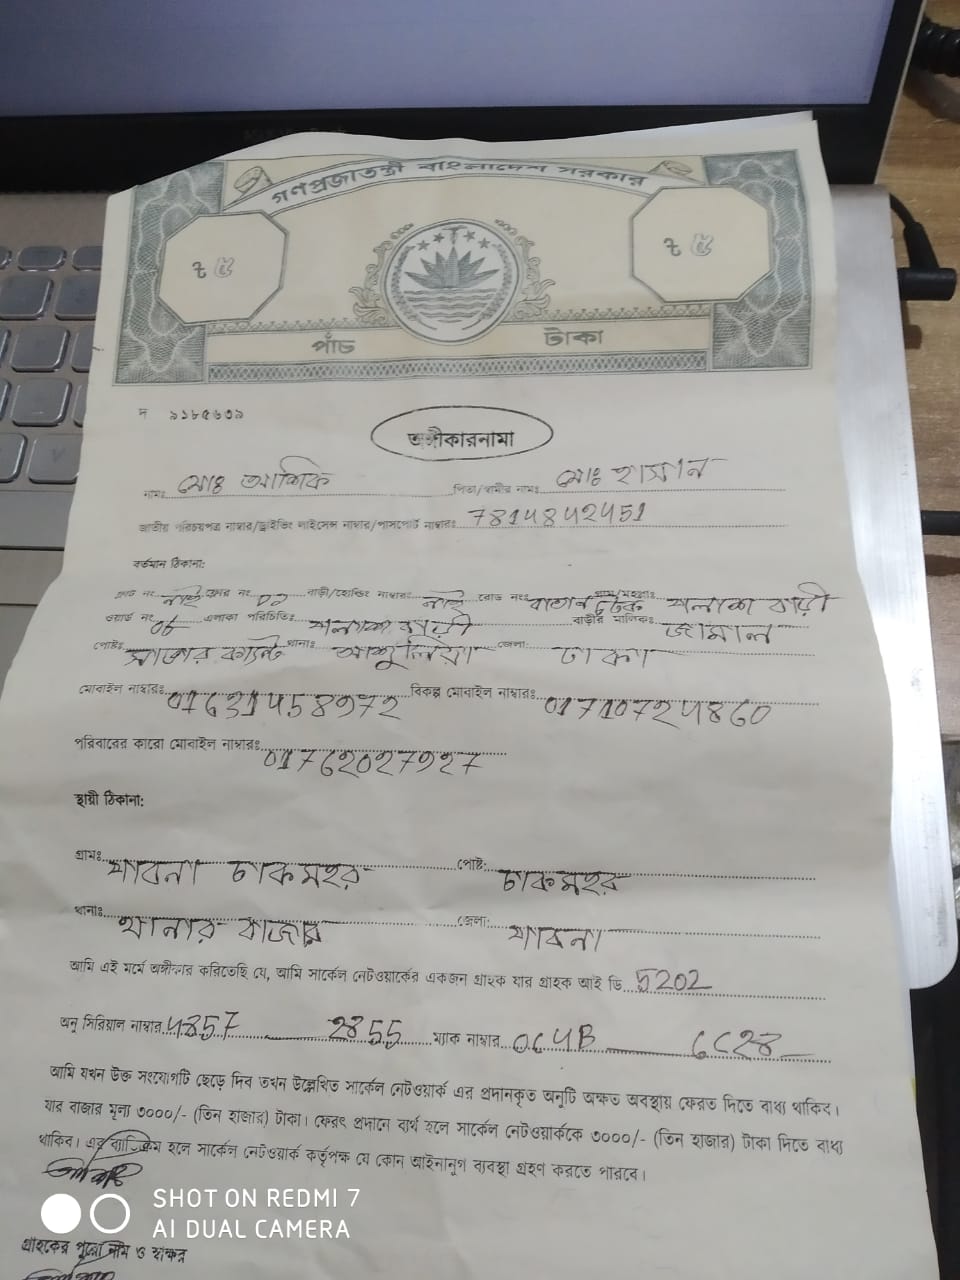 গণপ্রজাতন্ত্রী বাংলাদেশ সরকার
৳ ৫ ৳ ৫
পাঁচ টাকা
দ ৯১৮৫৬৩৯
অঙ্গীকারনামা
নামঃ মোঃ আশিক পিতা/স্বামীর নামঃ মোঃ হাসান
জাতীয় পরিচয়পত্র নাম্বার/ড্রাইভিং লাইসেন্স নাম্বার/পাসপোর্ট নাম্বারঃ 7814842451
বর্তমান ঠিকানা:
ফ্লাট নং নাই ফ্লোর নং ০১ বাড়ী/হোল্ডিং নাম্বারঃ নাই রোড নংঃ বাতান টেক গ্রাম/মহল্লাঃ পলাশ বাড়ী
ওয়ার্ড নং 06 এলাকা পরিচিতিঃ পলাশ বাড়ী বাড়ীর মালিকঃ জামাল
পোষ্টঃ সাভার ক্যান্ট থানাঃ আশুলিয়া জেলা: ঢাকা
মোবাইল নাম্বারঃ 01631458972 বিকল্প মোবাইল নাম্বারঃ 01710724860
পরিবারের কারো মোবাইল নাম্বারঃ 01762027927
স্থায়ী ঠিকানা:
গ্রামঃ পাবনা চাকমহর পোষ্ট: চাকমহর
থানাঃ থানার বাজার জেলা: পাবনা
আমি এই মর্মে অঙ্গীকার করিতেছি যে, আমি সার্কেল নেটওয়ার্কের একজন গ্রাহক যার গ্রাহক আই ডি 5202
অনু সিরিয়াল নাম্বার 4857 2855 ম্যাক নাম্বার 0C4B 6C28
আমি যখন উক্ত সংযোগটি ছেড়ে দিব তখন উল্লেখিত সার্কেল নেটওয়ার্ক এর প্রদানকৃত অনুটি অক্ষত অবস্থায় ফেরত দিতে বাধ্য থাকিব।
যার বাজার মূল্য ৩০০০/- (তিন হাজার) টাকা। ফেরৎ প্রদানে ব্যর্থ হলে সার্কেল নেটওয়ার্ককে ৩০০০/- (তিন হাজার) টাকা দিতে বাধ্য
থাকিব। এর ব্যতিক্রম হলে সার্কেল নেটওয়ার্ক কর্তৃপক্ষ যে কোন আইনানুগ ব্যবস্থা গ্রহণ করতে পারবে।
SHOT ON REDMI 7
AI DUAL CAMERA
গ্রাহকের পুরো নাম ও স্বাক্ষর